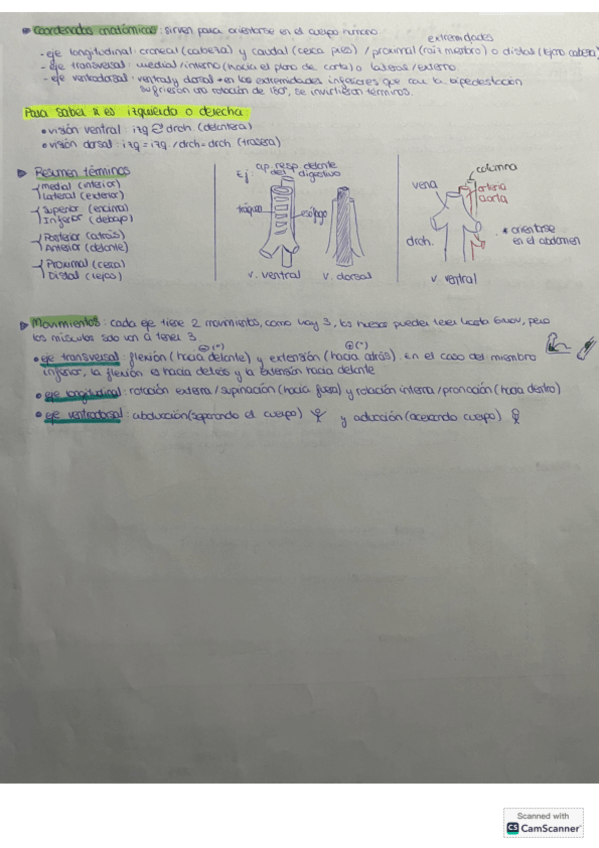 Coordenadas anatómicas: sirven para orientarse en el cuerpo humano
extremidades
- eje longitudinal: craneal (cabeza) y caudal (cerca pies) / proximal (raíz miembro) o distal (lejano cabeza)
- eje transversal: medial/interno (hacia el plano de corte) o lateral/externo
- eje ventrodorsal: ventral y dorsal • en las extremidades inferiores que con la bipedestación
sufrieron una rotación de 180º, se invirtieron términos.
Para saber si es izquierdo o derecha:
• visión ventral: izq drch. (delantera)
• visión dorsal: izq = izq / drch = drch (trasera)
Resumen términos
Medial (interior)
Lateral (exterior)
Superior (encima)
Inferior (debajo)
Posterior (atrás)
Anterior (delante)
Proximal (cerca)
Distal (lejos)
Ej
ap. resp. delante
del digestivo
tráquea
esófago
v. ventral
v. dorsal
columna
vena
arteria
aorta
drch.
* orientarse
en el abdomen
v. ventral
Movimientos: cada eje tiene 2 movimientos, como hay 3, los huesos pueden tener hasta 6 mov, pero
los músculos solo van a tener 3
• eje transversal: flexión (hacia delante) y extensión (hacia atrás). en el caso del miembro
inferior, la flexión es hacia detrás y la extensión hacia delante
• eje longitudinal: rotación externa / supinación (hacia fuera) y rotación interna / pronación (hacia dentro)
• eje ventrodorsal: abducción (separando el cuerpo) y aducción (acercando cuerpo)
Scanned with
CS CamScanner